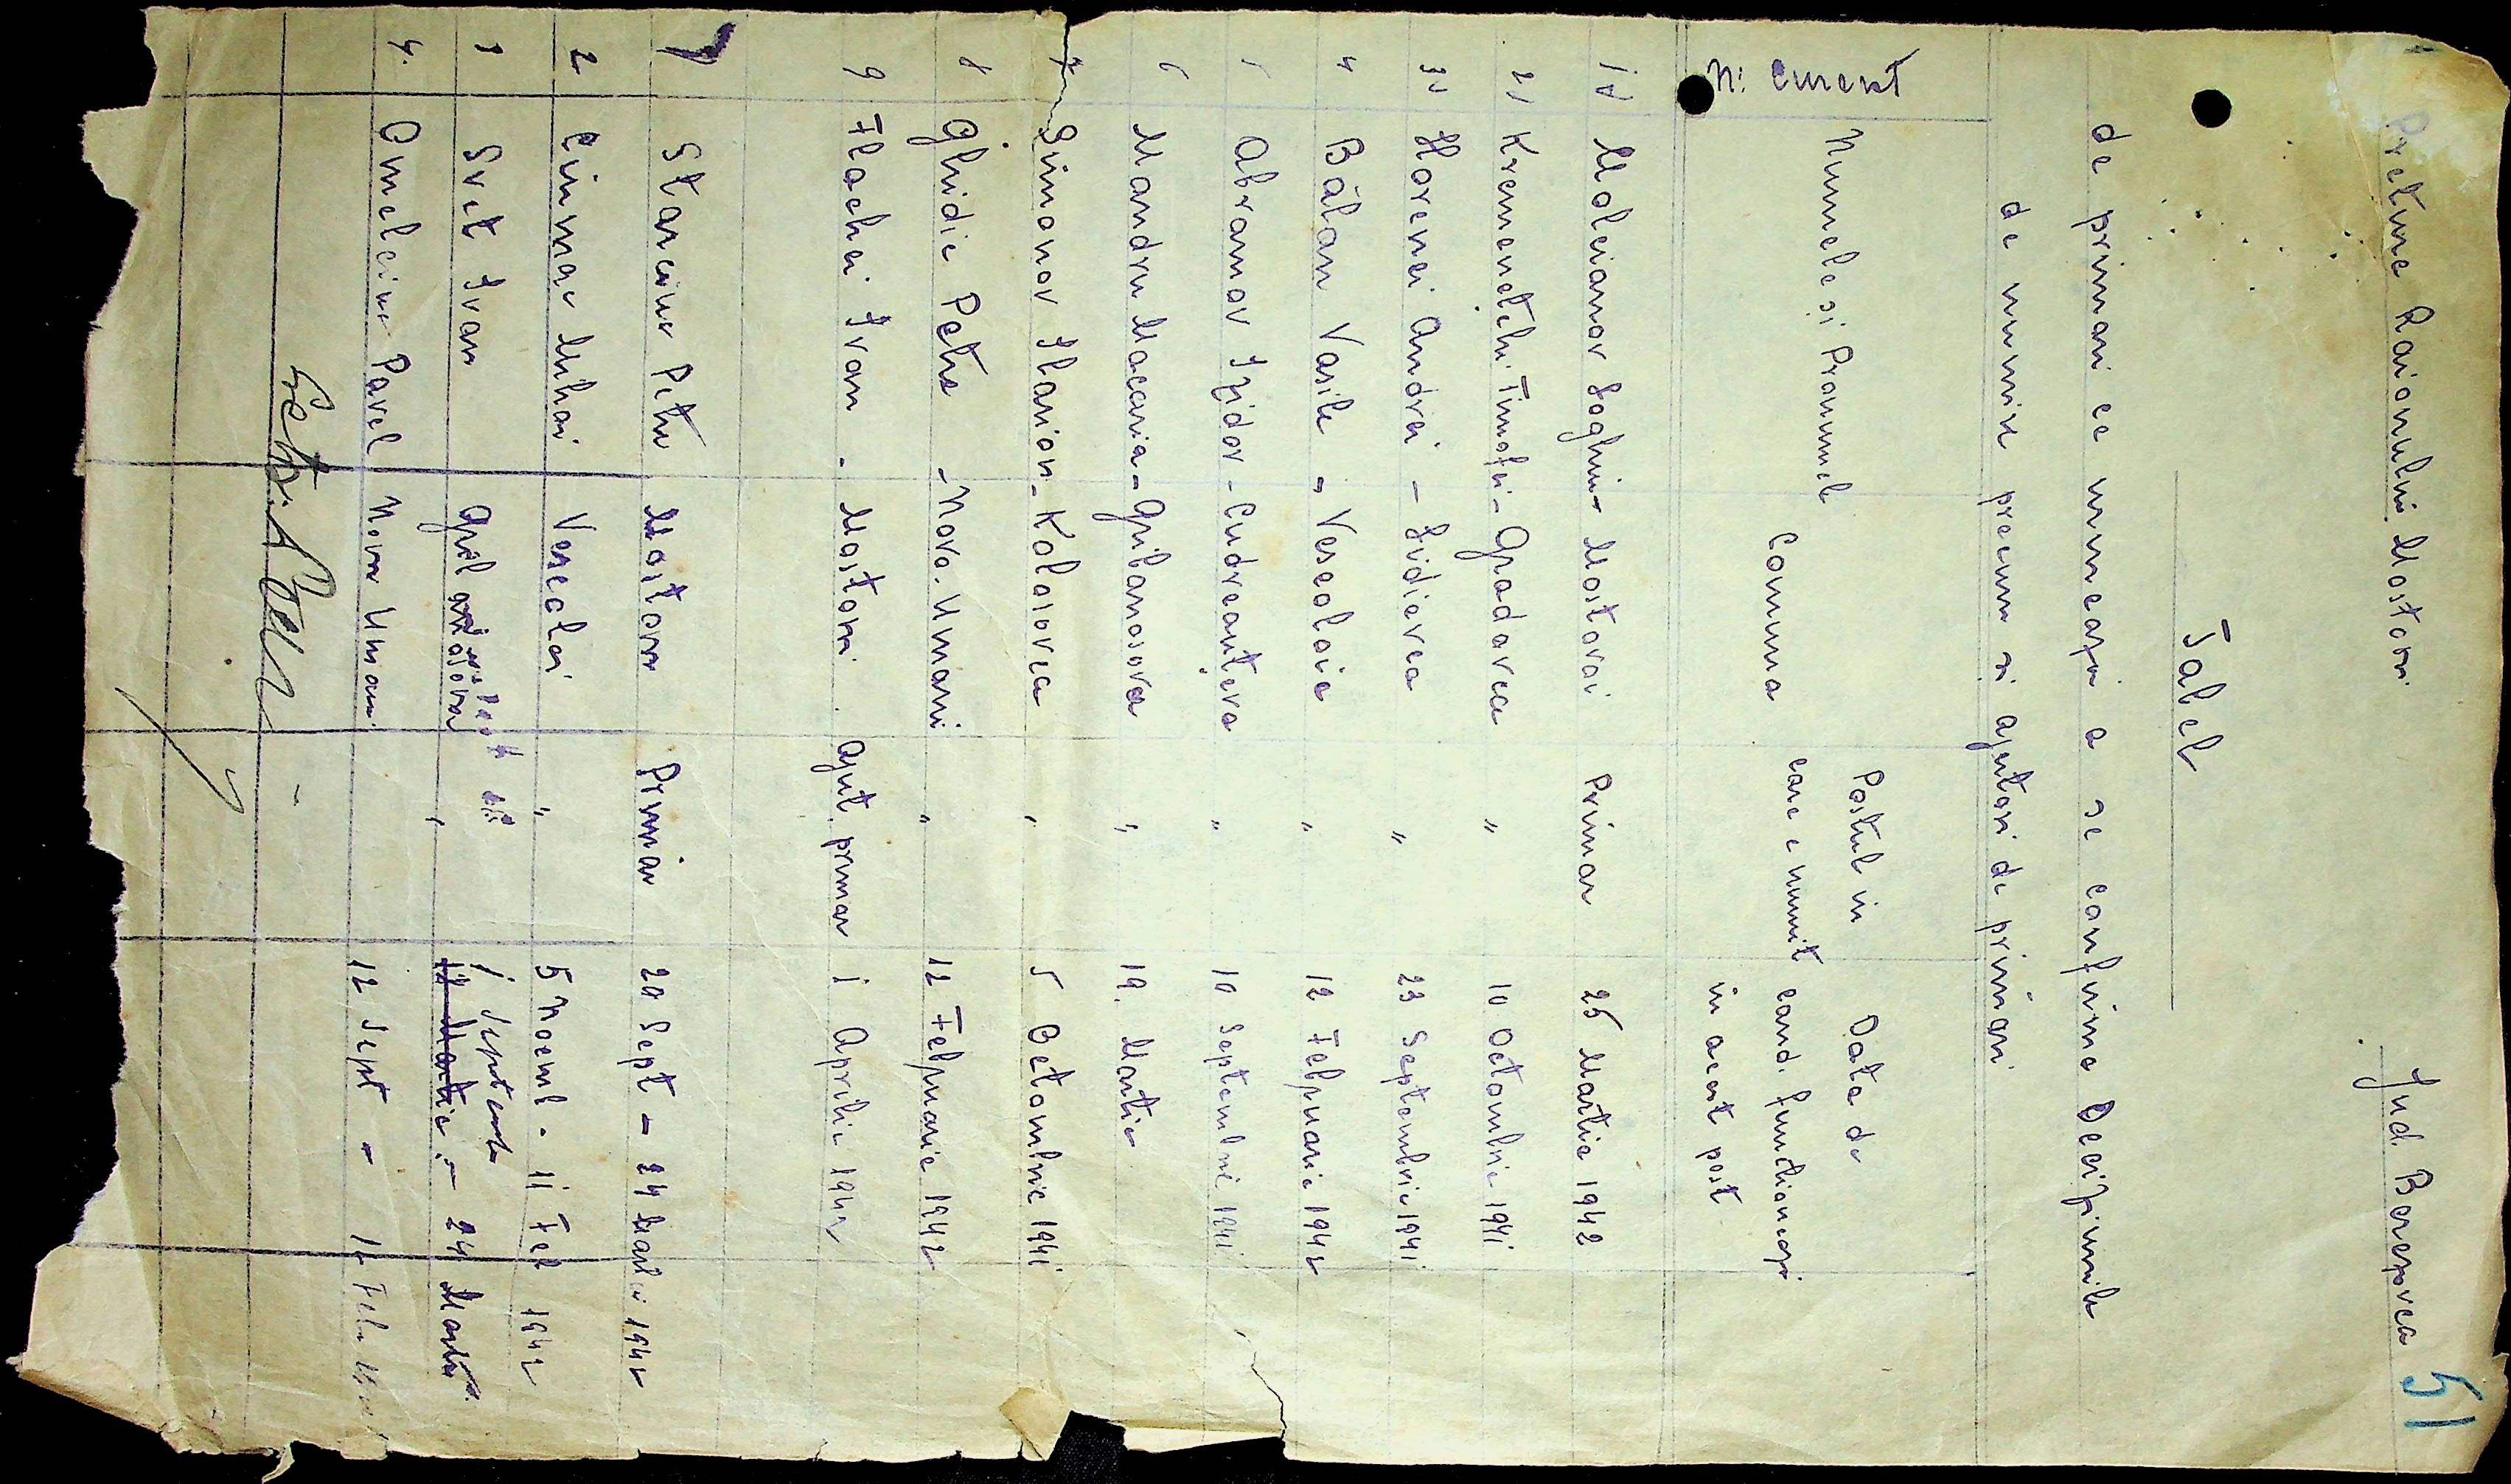 Preture Raionului Mostovi Jud. Berezovca 51
Tabel
de primari ce urmează a se confirma Decizinile
de numire precum si ajutori de primari
N: curent Numele si Pronumele Comuna Postul in care e numit Data de cand funcționează in acest post
1 Molcianov Loghin - Mostovoi Primar 25 Martie 1942
2 Kremenețchi Timofei - Gradovca " 10 Octombrie 1941
3 Horenci Andrei - Lidievca " 23 Septembrie 1941
4 Bălan Vasile - Veseolaia " 12 Februarie 1942
5 Abramov Izidor - Cudreanțeva " 10 Septembrie 1941
6 Mandru Macaria - Gribanosova " 19 Martie
7 Simonov Ilarion - Kolosovca " 5 Octombrie 1941
8 Ghidic Petre - Nova. Umani " 12 Februarie 1942
9 Flochei Ivan - Mostovi. ajut. primar 1 Aprilie 1942
Starciuc Petru Mostovoi Primar 20 Sept - 24 Martie 1942
2 Cirimac Mihai Veseolai " 5 Noemb - 11 Feb 1942
3 Svet Ivan " 1 Septembr
12 Martie - 24 Martie
4. Omelciuc Pavel Nova Umani 12 Sept - 12 Feb